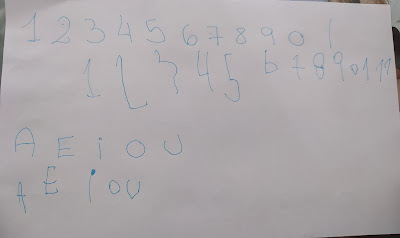 1 2 3 4 5 6 7 8 9 0 1
1 2 3 4 5 6 7 8 9 0 1 11
A E i O U
A E i O U